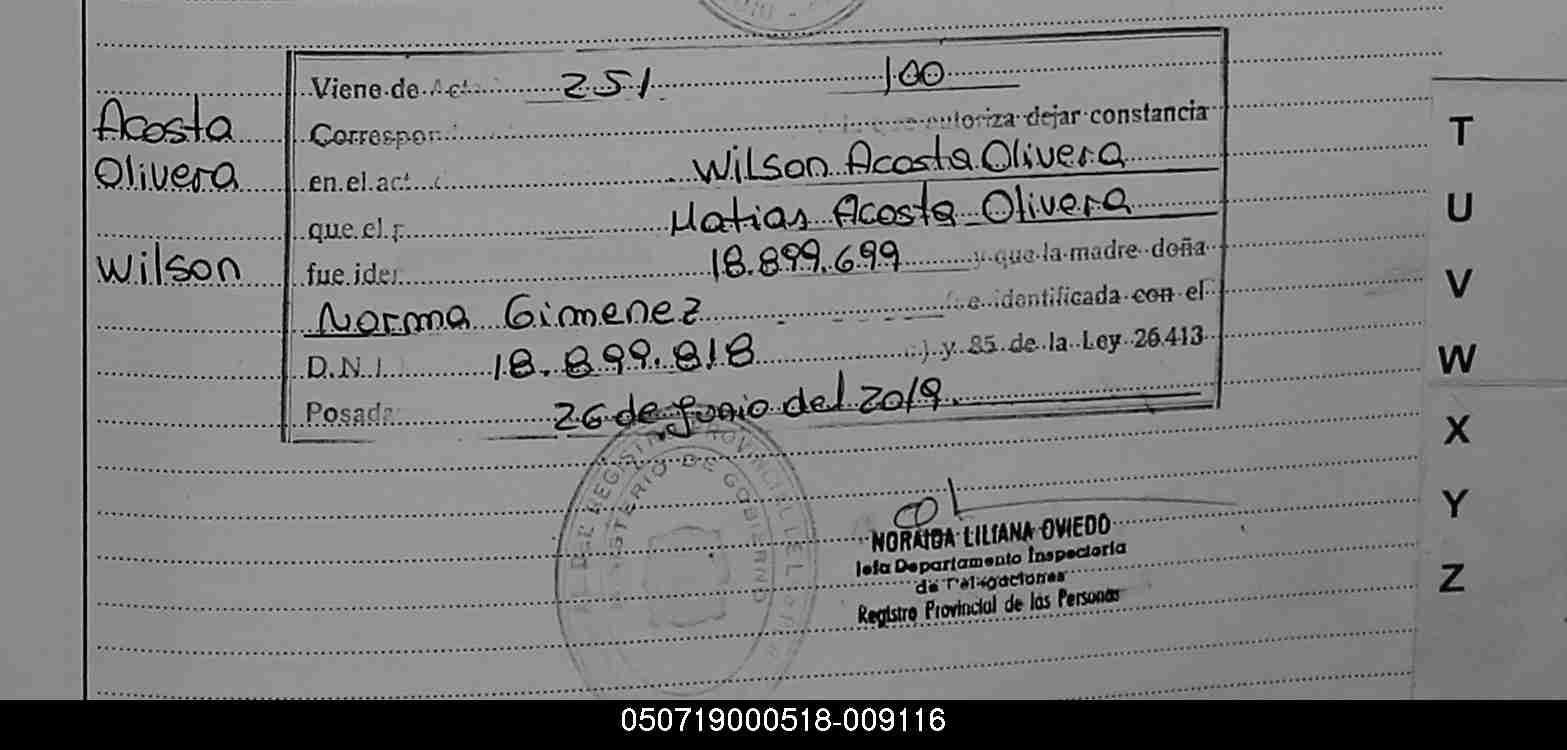 Acosta
Olivera
Wilson
Viene de Act 251 100
Correspon que autoriza dejar constancia
en el act Wilson Acosta Olivera
que el p Matias Acosta Olivera
fue iden 18.899.699 y que la madre doña
Norma Gimenez identificada con el
D.N.I 18.899.818 ) y 85 de la Ley 26.413
Posada 26 de Junio del 2019.
DEL REGISTRO PROVINCIAL DE
MINISTERIO DE GOBIERNO
NORAIDA LILIANA OVIEDO
Jefa Departamento Inspectoria
de Delegaciones
Registro Provincial de las Personas
T
U
V
W
X
Y
Z
050719000518-009116